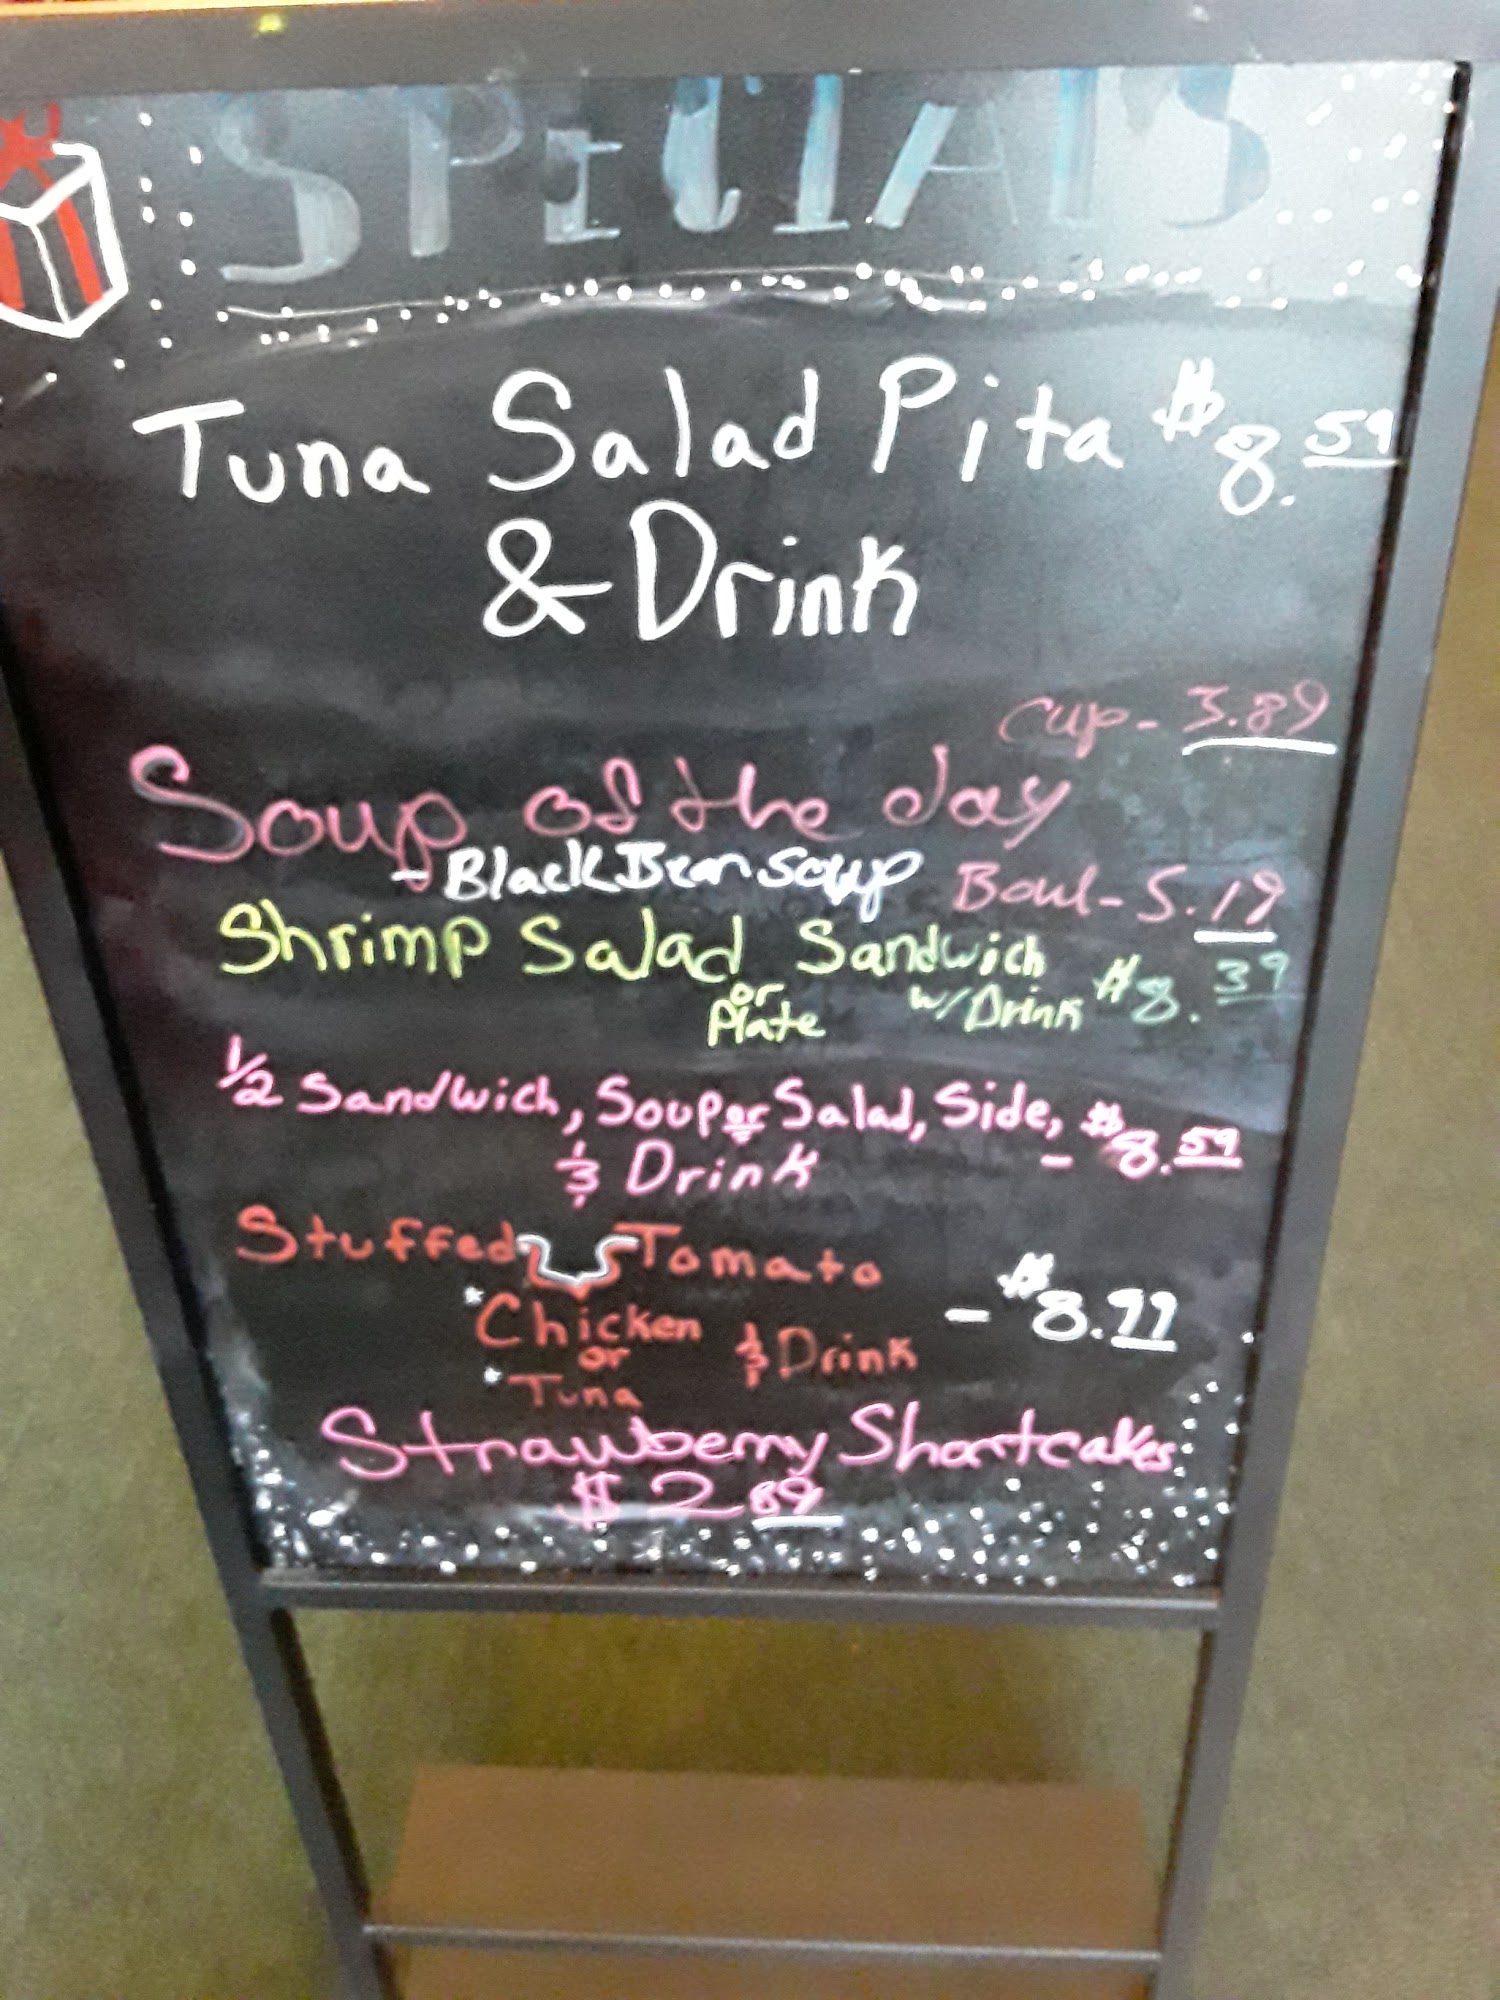 SPECIALS
Tuna Salad Pita $8.59
& Drink
Cup - 3.89
Soup of the day
- Black Bean Soup Bowl - 5.19
Shrimp Salad Sandwich
or Plate w/ Drink $8.39
1/2 Sandwich, Soup or Salad, Side,
& Drink - $8.59
Stuffed Tomato
*Chicken & Drink - $8.99
or
*Tuna
Strawberry Shortcakes
$2.89